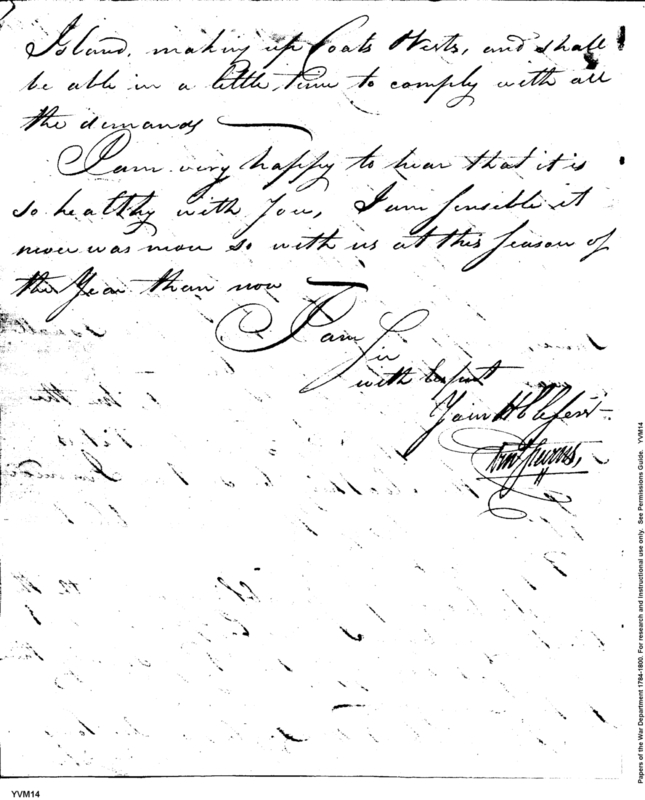 Island, making up Coats Vests, and shall
be able in a little time to comply with all
the demands
I am very happy to hear that it is
so healthy with You, I am sensible it
never was more so with us at this Season of
the Year than now
I am
Sir
with
Your
Papers of the War Department 1784-1800. For research and Instructional use only. See Permissions Guide. YVM14
YVM14